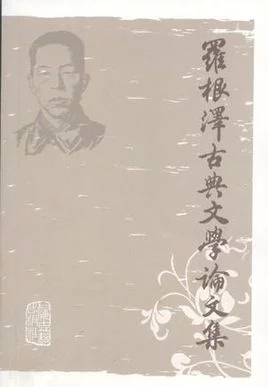 羅根澤古典文學論文集